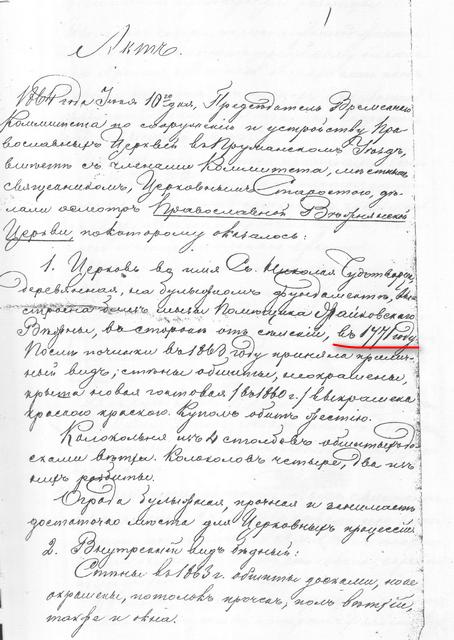 Актъ.
1864 года Іюня 10го дня, Предсѣдатель Временнаго
Коммитета по сооруженію и устройству Пра-
вославныхъ Церквей въ Пружанскомъ Уѣздѣ,
вмѣстѣ съ членами Коммитета, мѣстнымъ
священникомъ, Церковнымъ Старостою, дѣ-
лали осмотръ Православной
Церкви, по которому оказалось:
1. Церковь во имя Св. Николая Чудотворца,
деревянная, на булыжномъ фундаментѣ, вы-
строена близъ мызы Помѣщика
въ сторонѣ отъ селеній, въ 1771 году.
Послѣ починки въ 1863 году приняла прилич-
ный видъ; стѣны обшиты, неокрашены,
крыта новая гонтовая (въ 1860 г.) выкрашена
красною краскою. Куполъ обитъ жестію.
Колокольня изъ 4 столбовъ обшитыхъ до-
сками ветха. Колоколовъ четыре, два изъ
нихъ разбиты.
Ограда булыжная, прочная и занимаетъ
достаточно мѣста для Церковныхъ процессій
2. Внутренній видъ бѣдный:
Стѣны въ 1863 г. обшиты досками, не
окрашены, потолокъ проченъ, полъ ветхій,
также и окна.